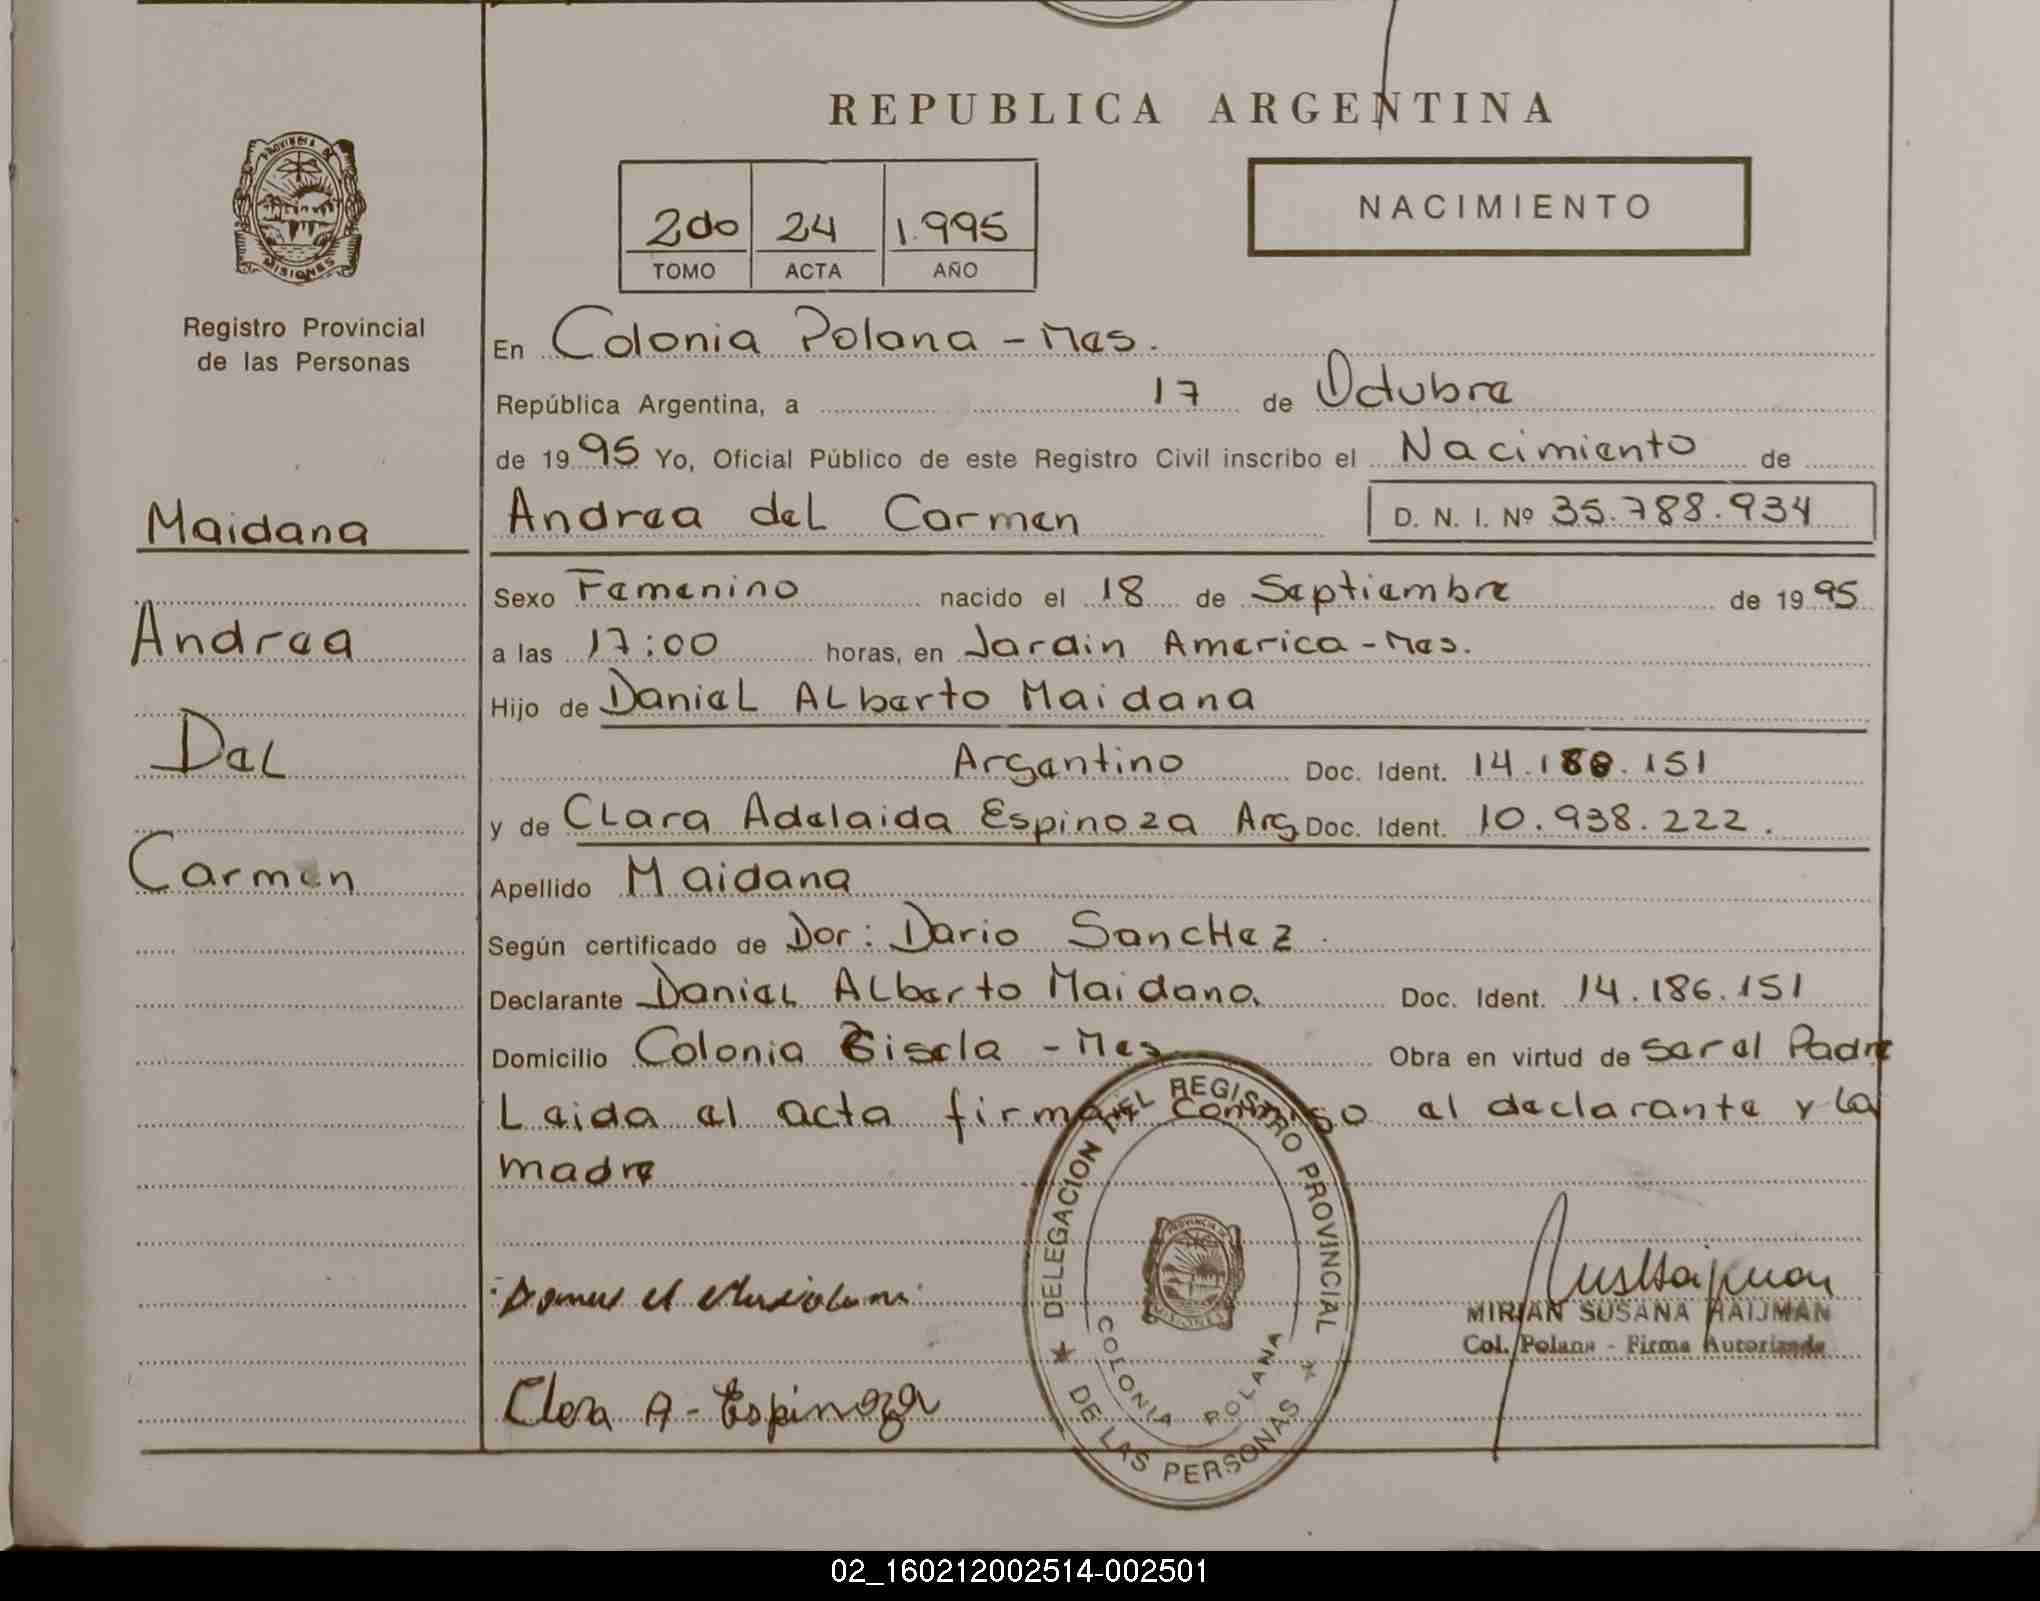 REPUBLICA ARGENTINA
PROVINCIA DE
MISIONES
Registro Provincial
de las Personas
2do 24 1.995
TOMO ACTA AÑO
NACIMIENTO
En Colonia Polana - Mes.
República Argentina, a 17 de Octubre
de 1995 Yo, Oficial Público de este Registro Civil inscribo el Nacimiento de
Maidana
Andrea del Carmen D. N. I. Nº 35.788.934
Sexo Femenino nacido el 18 de Septiembre de 1995
Andrea
a las 17:00 horas, en Jardin America - Mes.
Hijo de Daniel Alberto Maidana
Del
Argentino Doc. Ident. 14.186.151
y de Clara Adelaida Espinoza Arg Doc. Ident. 10.938.222.
Carmen
Apellido Maidana
Según certificado de Dor: Dario Sanchez
Declarante Daniel Alberto Maidana Doc. Ident. 14.186.151
Domicilio Colonia Gisela - Mes Obra en virtud de ser el Padre
Leida el acta firman conmigo el declarante y la
madre
DELEGACION DEL REGISTRO PROVINCIAL
DE LAS PERSONAS
COLONIA POLANA
PROVINCIA DE
MISIONES
MIRIAN SUSANA HAIJMAN
Col. Polana - Firma Autorizada
Clara A - Espinoza
02_160212002514-002501